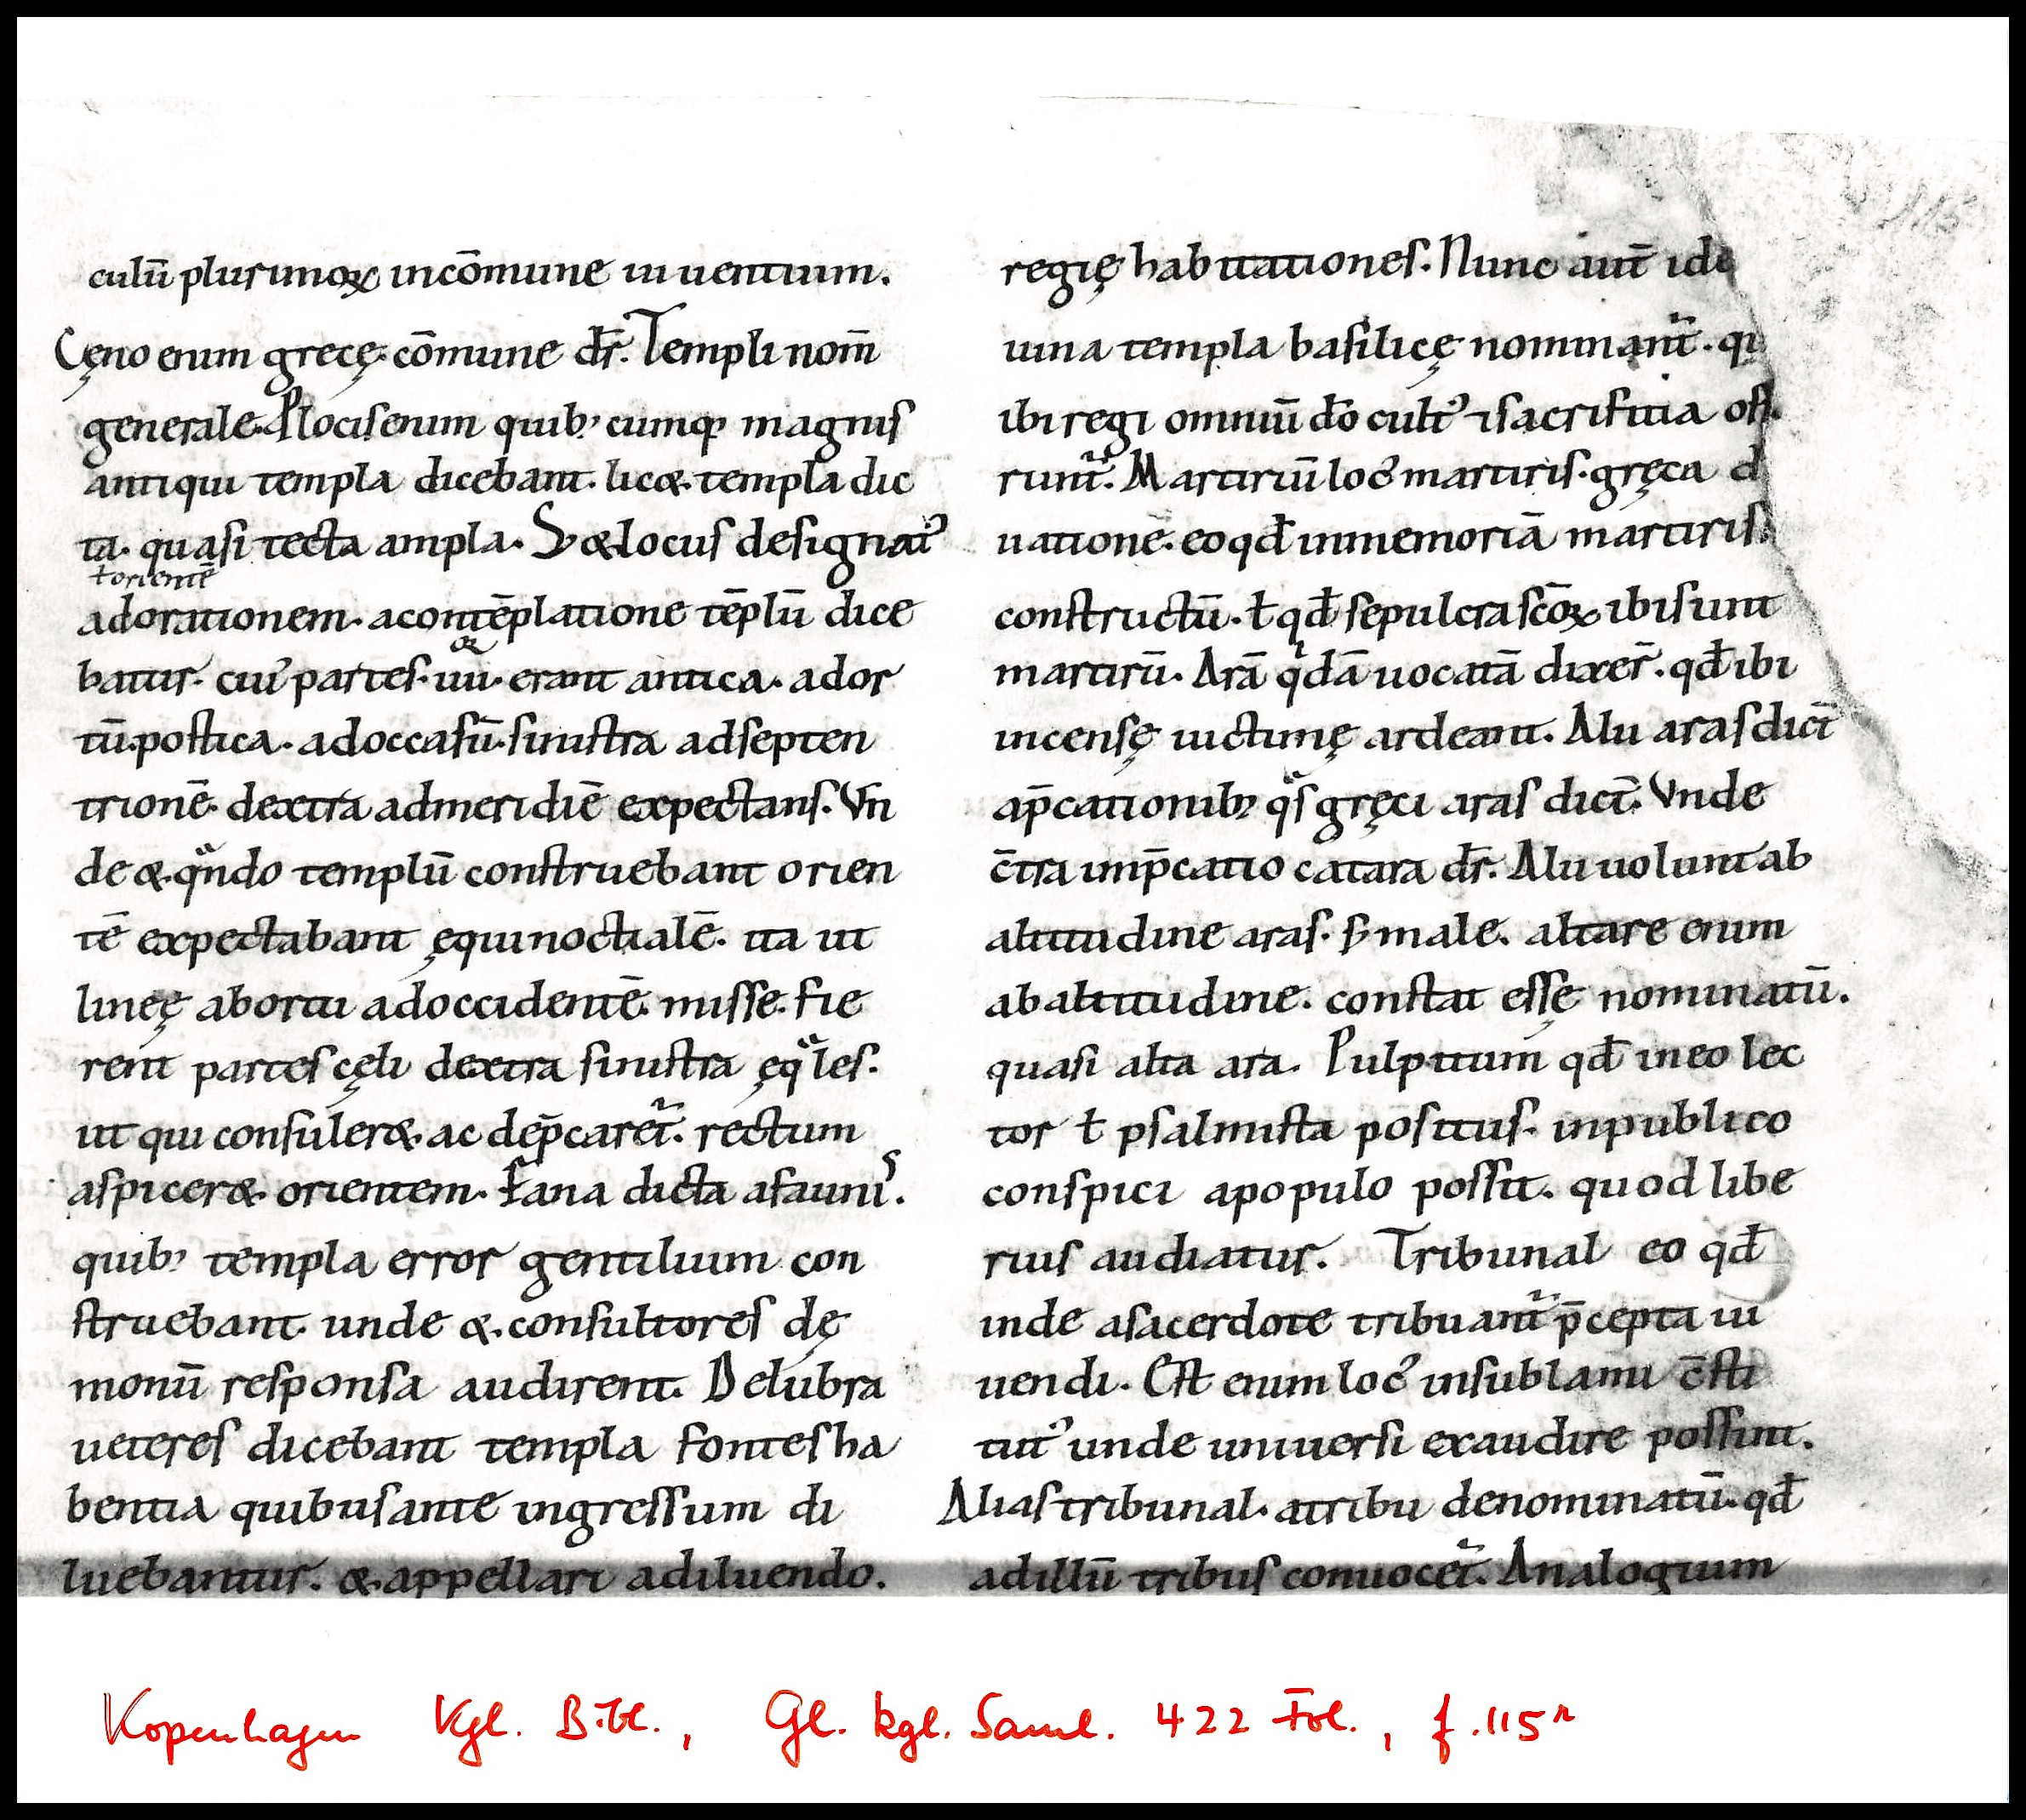 culū plurimoꝝ incōmune iuuentium.
Cęno enim grecę. cōmune dr̄. Templi nom̄
generale. P locis enim quib; cumq; magnis
antiqui templa dicebant. lic&. templa dic
ta. quasi tecta ampla. S; & locus designat᾽
ł orientē
adorationem. acontēplatione tēplū dice
batur. cui᾽ partes. iiii. erant antica. ador
or
tū. postica. adoccasū. sinistra adsepten
trionē. dextra admeridiē expectans. Vn
de &. qͣndo templū construebant orien
tē expectabant ęquinoctialē. ita ut
lineę abortu adoccidentē. misse. fie
rent partes cęli dextra sinistra ęqͣles.
ut qui consuler&. ac dep̄caret᷑. rectum
aspicer&. orientem. Fana dicta afaunis.
quib; templa error gentilium con
struebant. unde &. consultores dę
monū responsa audirent. Delubra
ueteres dicebant templa fontes ha
bentia quibus ante ingressum di
luebantur. &. appellari adiluendo.
regię habitationes. Nunc aut̄ ide
uina templa basilicę nominant᷑. qi
ibi regi omniū dō cult᾽ ⁊ sacrificia off
runt᷑. Martiriū loc᾽ martiris. gręca d
uatione. eo qd̄ inmemoriā martiris.
constructū. ł qd̄ sepulcra scōꝝ ibi sunt
martirū. Arā qͥdā uocatā dixer̄. qd̄ ibi
incensę uictimę ardeant. Alii aras dict̄
ap̄cationib; qͣs gręci aras dict̄. Vnde
c̄tra imp̄catio catara dr̄. Alii uolunt ab
altitudine aras. s; male. altare enim
ab altitudine. constat essę nominatū.
quasi alta ara. Pulpitum qd̄ in eo lec
tor ł psalmista positus. inpublico
conspici apopulo possit. quod libe
rius audiatur. Tribunal eo qd̄
inde asacerdote tribuant᷑ p̄cepta ui
uendi. Est enim loc᾽ insublami c̄sti
tut᾽ unde uniuersi exaudire possint.
Alias tribunal. atribu denominatū. qd̄
adillū tribus conuocet᷑. Analogium
Kopenhagen Kgl. Bibl., Gl. kgl. Saml. 422 Fol., f. 115r